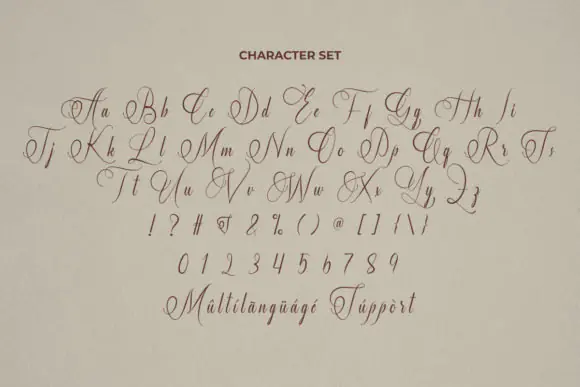 CHARACTER SET
Aa Bb Cc Dd Ee Ff Gg Hh Ii
Jj Kk Ll Mm Nn Oo Pp Qq Rr Ss
Tt Uu Vv Ww Xx Yy Zz
! ? # $ & % ( ) @ [ ] { \ }
0 1 2 3 4 5 6 7 8 9
Mûltílãngüágé Túppòrt